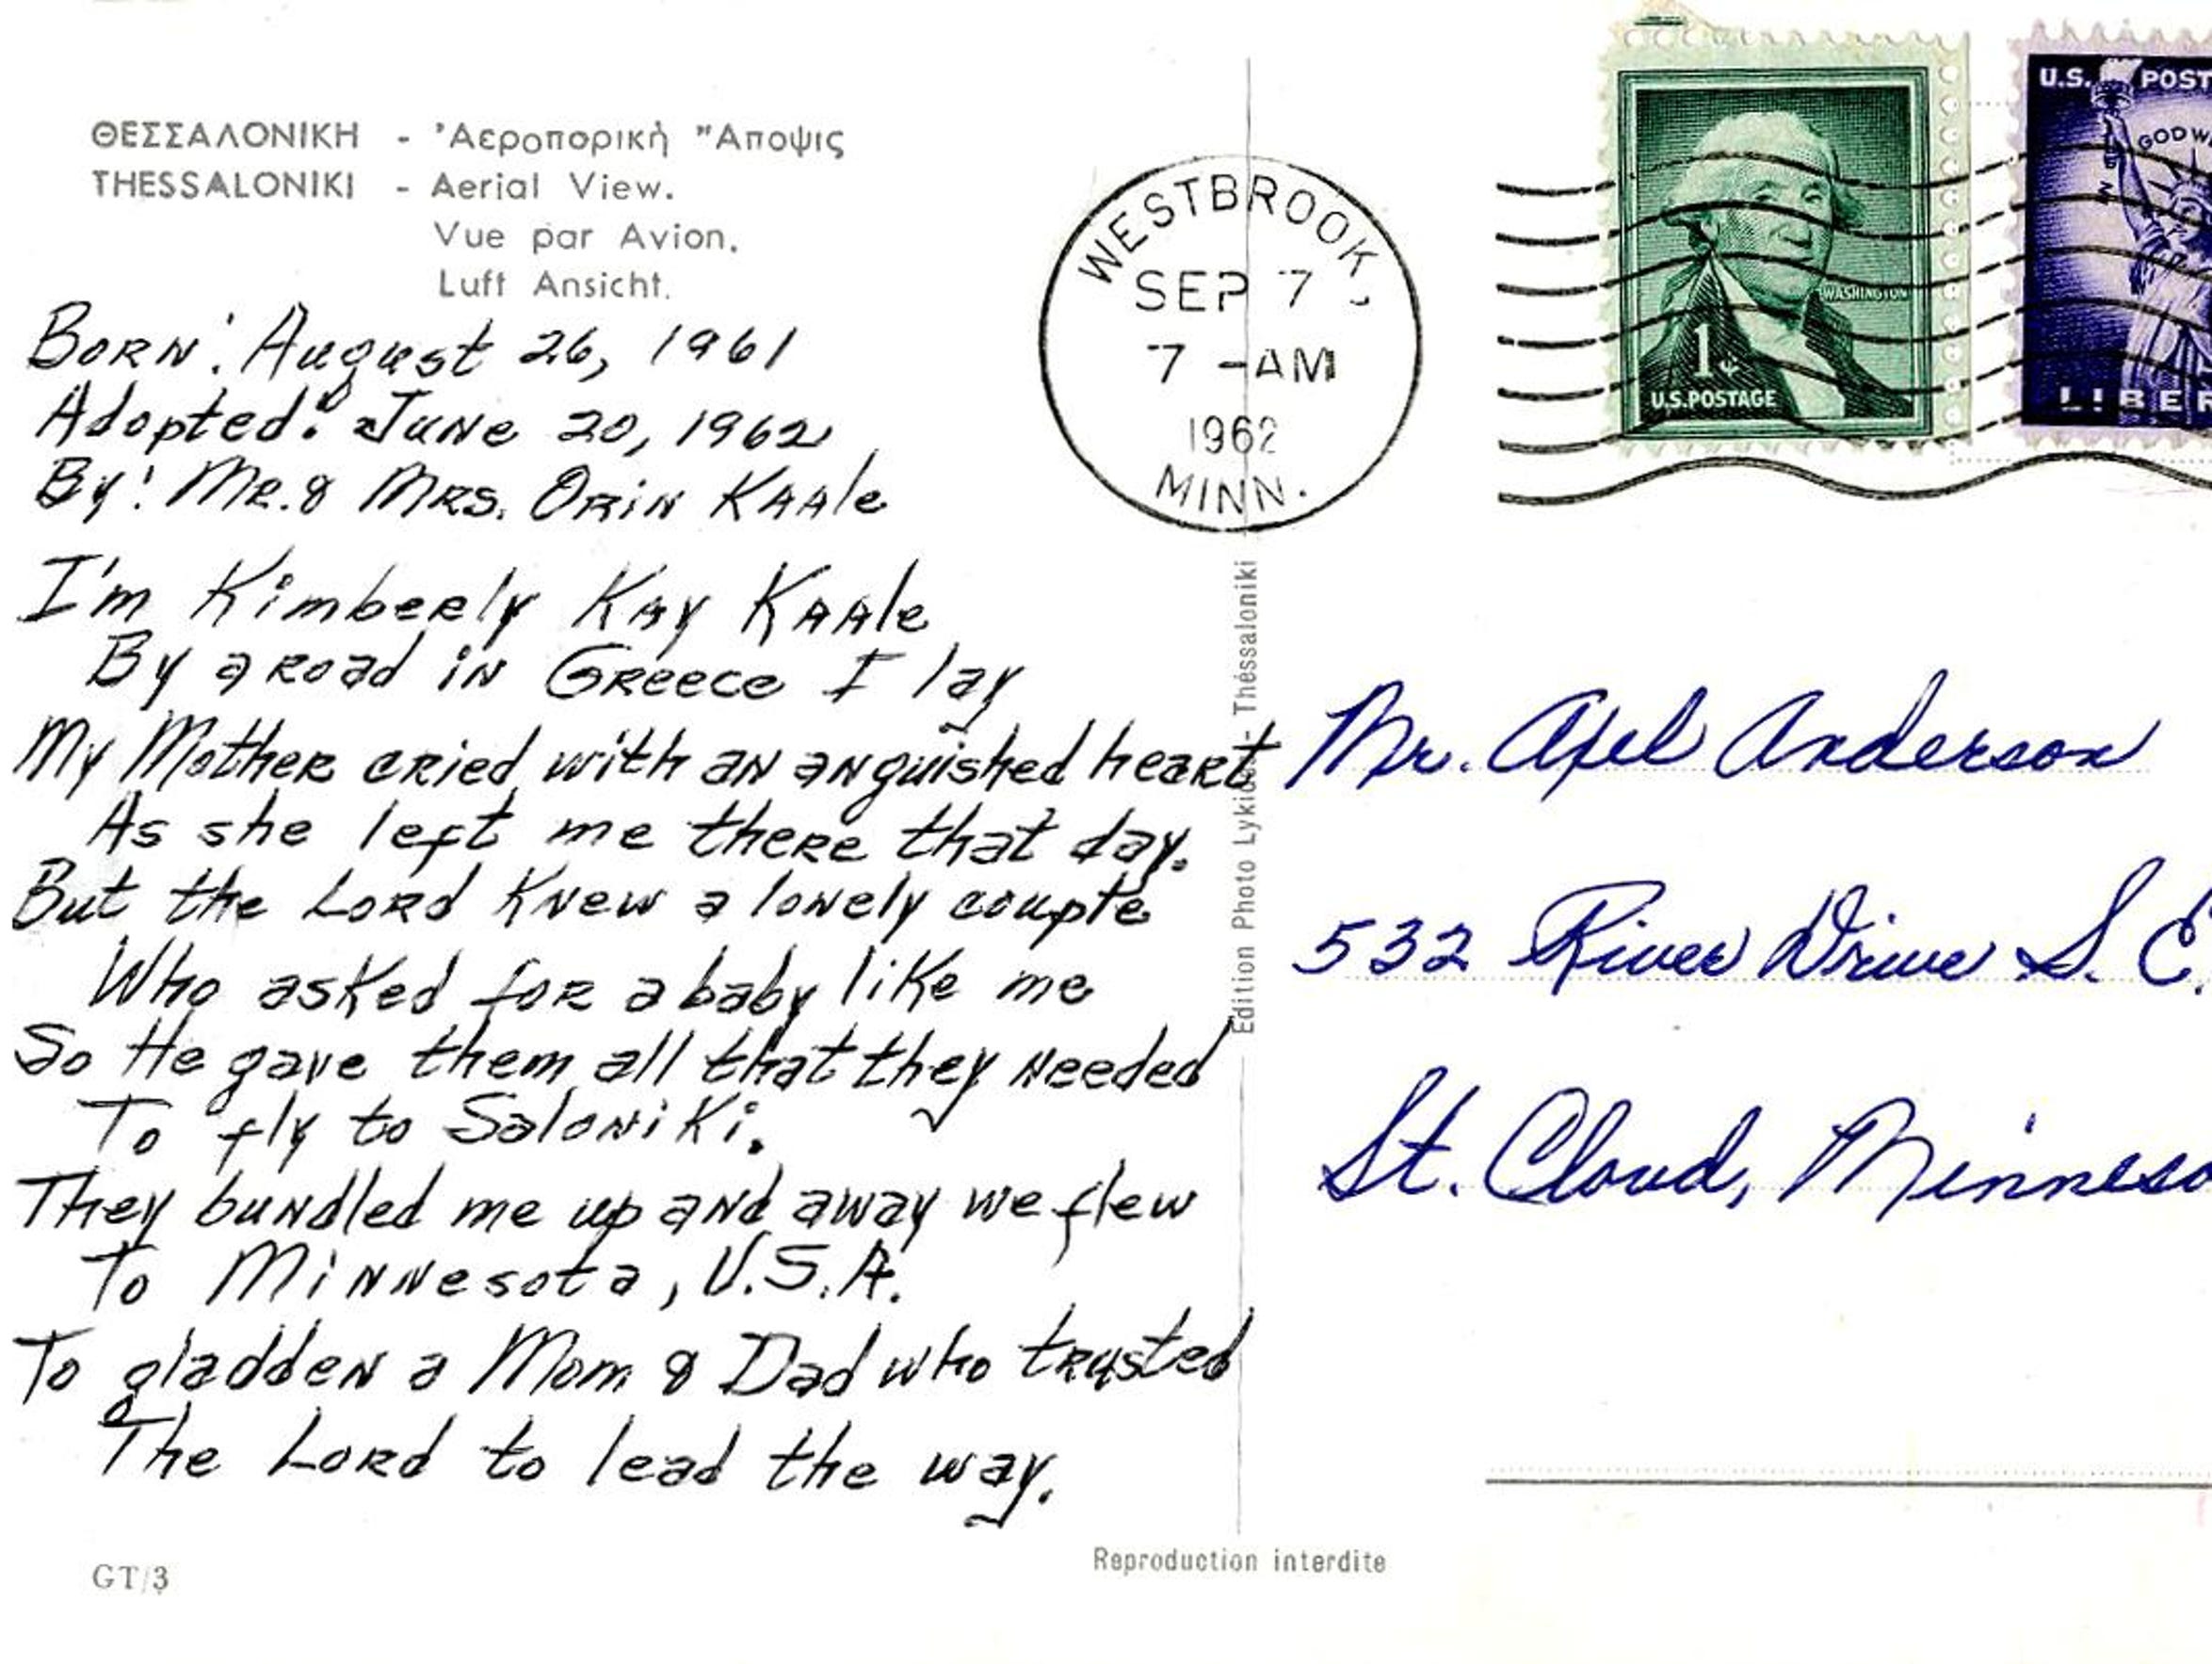 ΘΕΣΣΑΛΟΝΙΚΗ - 'Αεροπορικὴ "Αποψις
THESSALONIKI - Aerial View.
Vue par Avion.
Luft Ansicht.
Born: August 26, 1961
Adopted: June 20, 1962
By: Mr. & Mrs. Orin Kaale
I'm Kimberly Kay Kaale
By a road in Greece I lay
My Mother cried with an anguished heart
As she left me there that day.
But the Lord knew a lonely couple
Who asked for a baby like me
So He gave them all that they needed
To fly to Saloniki.
They bundled me up and away we flew
To Minnesota, U.S.A.
To gladden a Mom & Dad who trusted
The Lord to lead the way.
GT/3
WESTBROOK,
SEP 7
7 -AM
1962
MINN.
WASHINGTON
1¢
U.S.POSTAGE
U.S. POST
GOD W
LIBER
Edition Photo - Thessaloniki
Mr. Axel Anderson
532 River Drive S. E.
St. Cloud, Minneso
Reproduction interdite